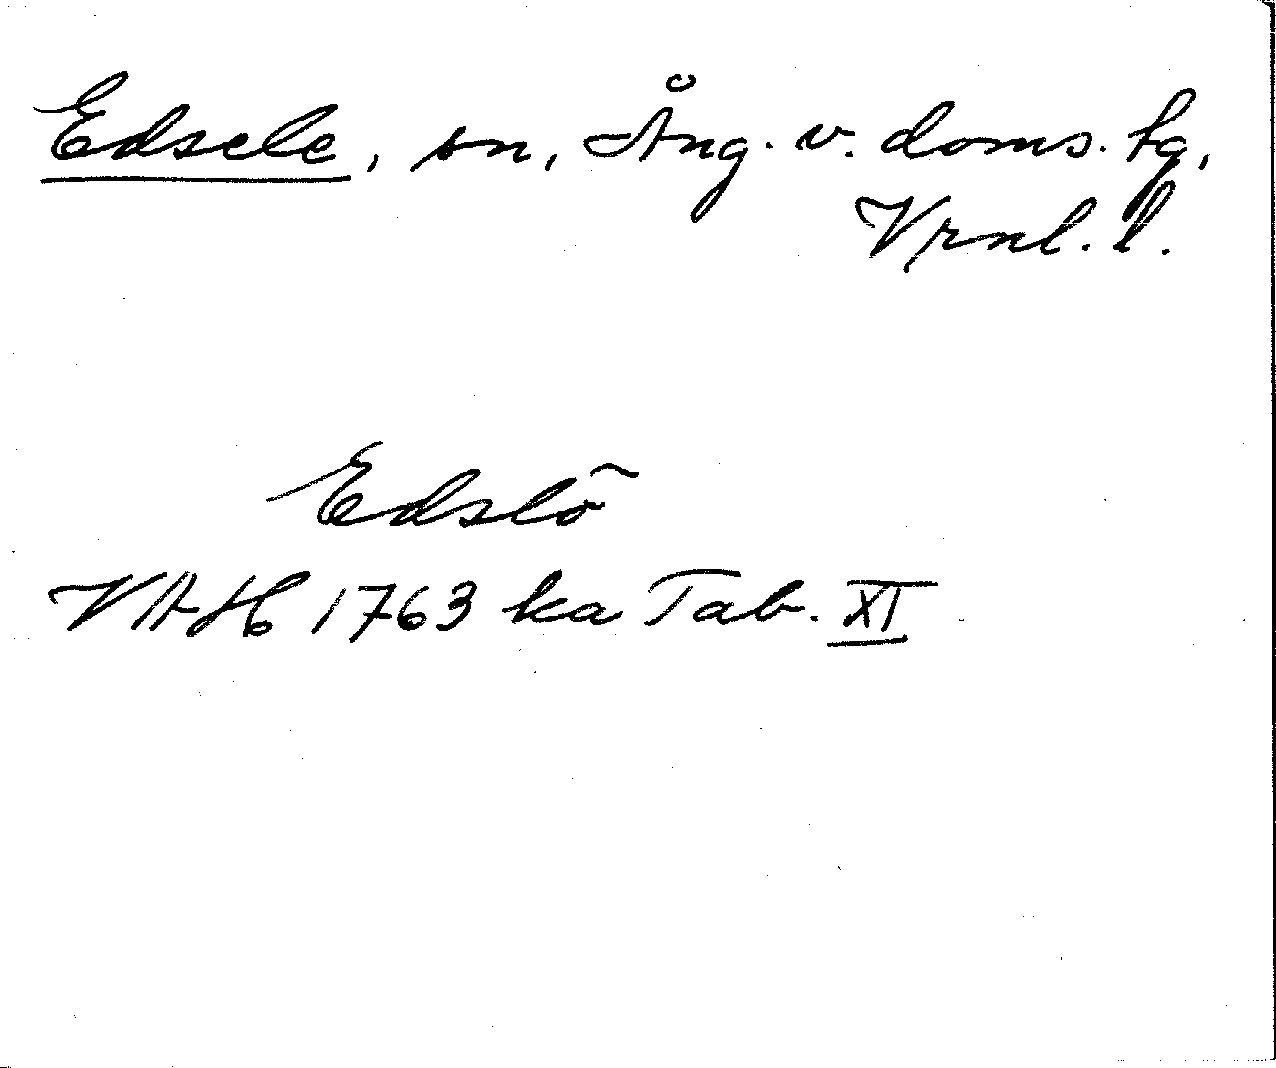 Edsele, sn, Ång. v. doms. tg,
Vrnl. l.
Edslõ
VAH 1763 ka Tab. XI